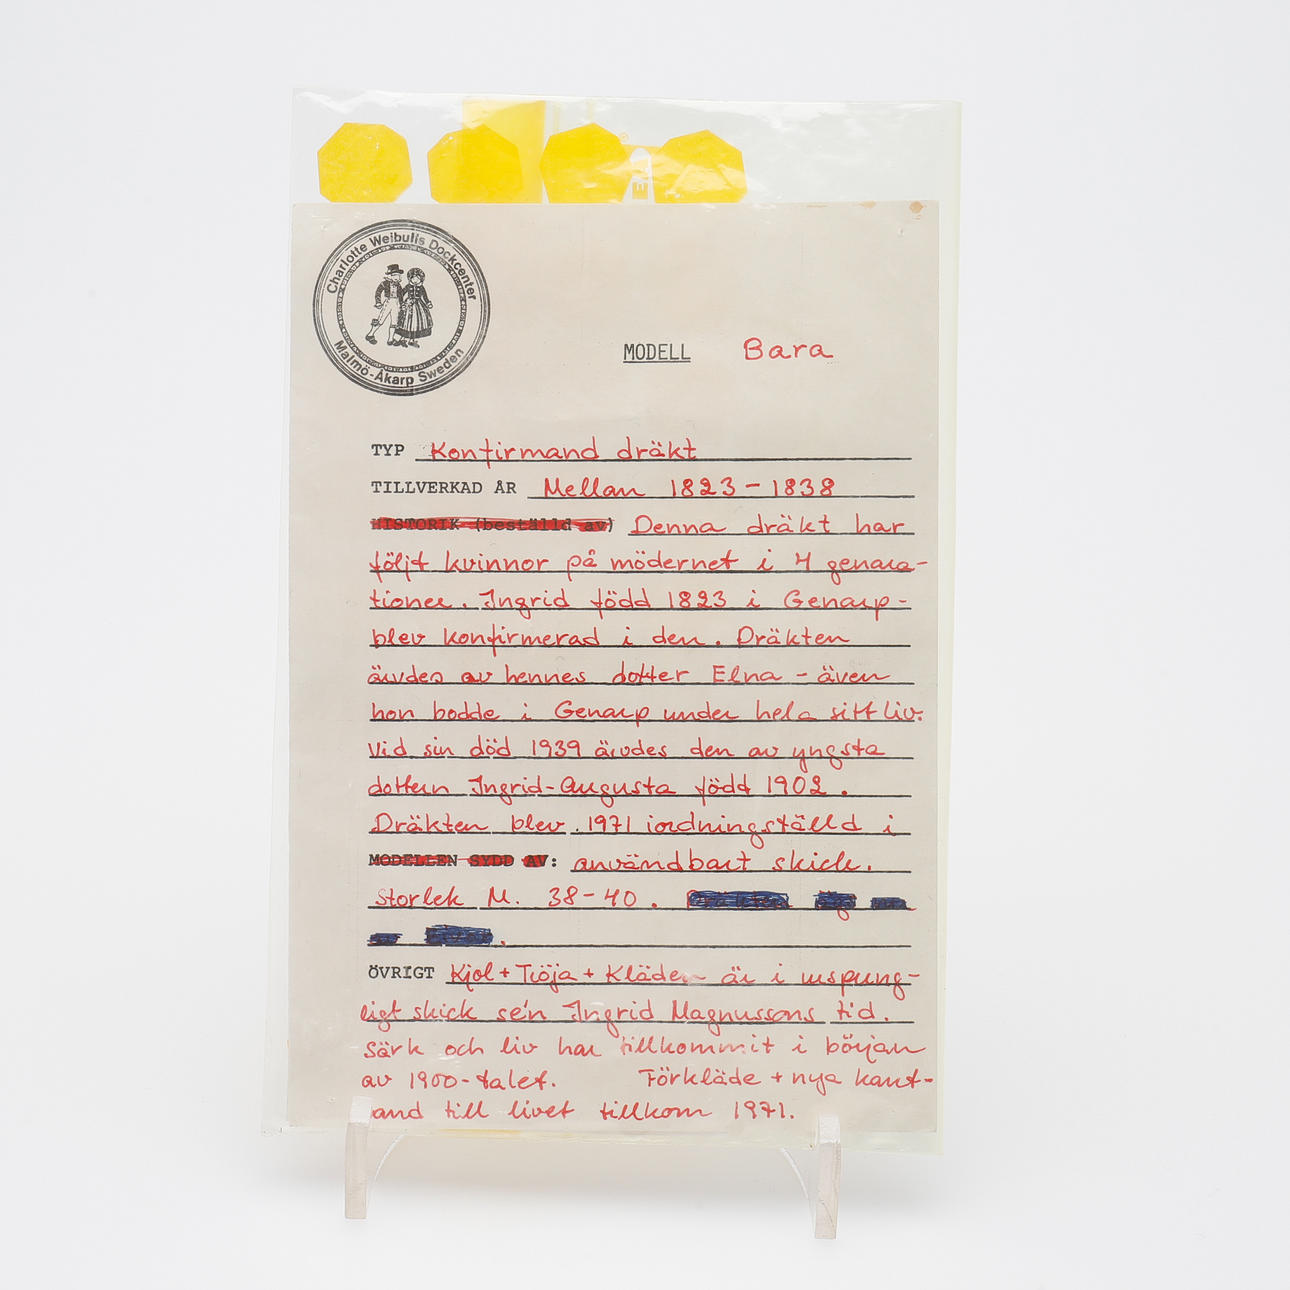 Charlotte Weibulls Dockcenter
Malmö-Åkarp Sweden
MODELL Bara
TYP Konfirmand dräkt
TILLVERKAD ÅR Mellan 1823-1838
HISTORIK (beställd av) Denna dräkt har
följt kvinnor på mödernet i 4 genara-
tioner. Ingrid född 1823 i Genarp-
blev konfirmerad i den. Dräkten
ärvdes av hennes dotter Elna - även
hon bodde i Genarp under hela sitt liv.
Vid sin död 1939 ärvdes den av yngsta
dottern Ingrid-Augusta född 1902.
Dräkten blev 1971 iordningställd i
MODELLEN SYDD AV: användbart skick.
Storlek M. 38-40.
ÖVRIGT Kjol + Tröja + Kläden är i urspung-
ligt skick se'n Ingrid Magnussons tid.
Särk och liv har tillkommit i början
av 1900-talet. Förkläde + nya kant-
band till livet tillkom 1971.